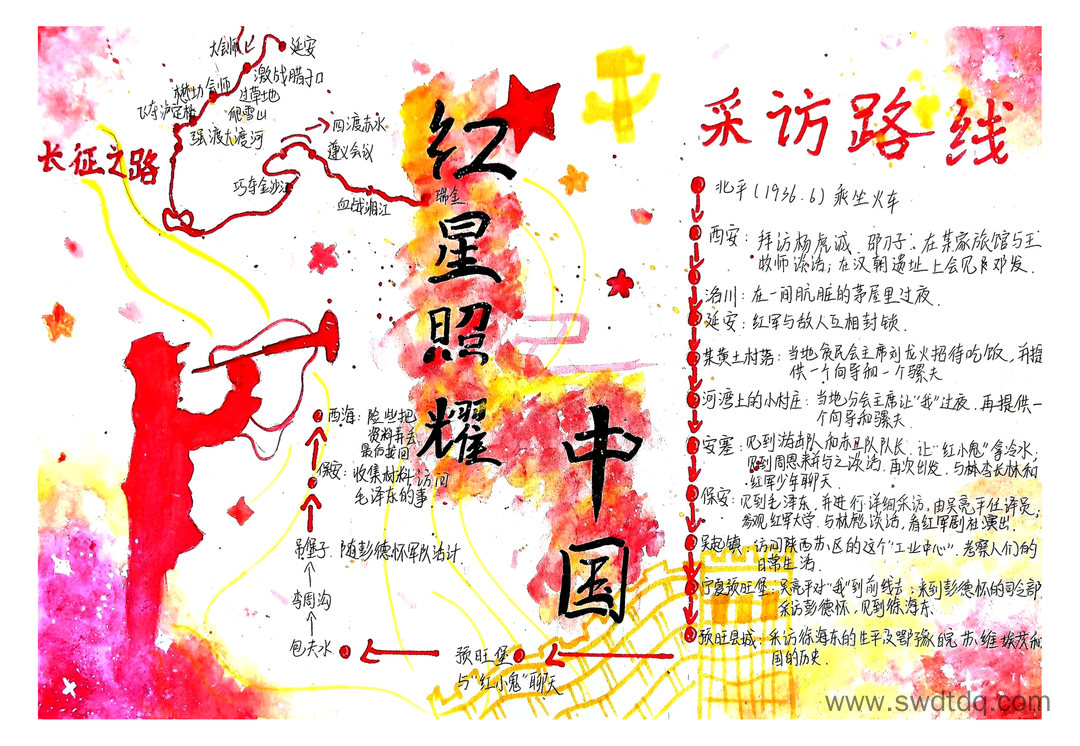 长征之路
大会师
延安
激战腊子口
懋功会师
过草地
爬雪山
飞夺泸定桥
强渡大渡河
四渡赤水
遵义会议
巧夺金沙江
血战湘江
瑞金
红星照耀
中国
采访路线
北平(1936.6)乘坐火车
西安:拜访杨虎诚、邵力子,在某家旅馆与王
牧师谈话;在汉朝遗址上会见邓发.
洛川:在一间肮脏的茅屋里过夜.
延安:红军与敌人互相封锁.
某黄土村落:当地贫民会主席刘龙火招待吃饭,并提
供一个向导和一个骡夫
河湾上的小村庄:当地分会主席让"我"过夜,再提供一
个向导和骡夫.
安塞:见到游击队和赤卫队队长,让"红小鬼"拿冷水,
见到周恩来并与之谈话,再次出发,与林李长林和
红军少年聊天.
保安:见到毛泽东,并进行详细采访,由吴亮平任译员,
参观红军大学,与林彪谈话,看红军剧社演出.
吴起镇:访问陕西苏区的这个"工业中心",考察人们的
日常生活.
宁夏预旺堡:吴亮平对"我"到前线去;来到彭德怀的司令部
采访彭德怀,见到徐海东.
预旺县城:采访徐海东的生平及鄂豫皖苏维埃共和
国的历史.
预旺堡
与"红小鬼"聊天
包夫水
李周沟
吊堡子:随彭德怀军队
保安:收集材料访问
毛泽东的事.
西海:险些把
资料弄丢
最后找回
www.swdtdq.com